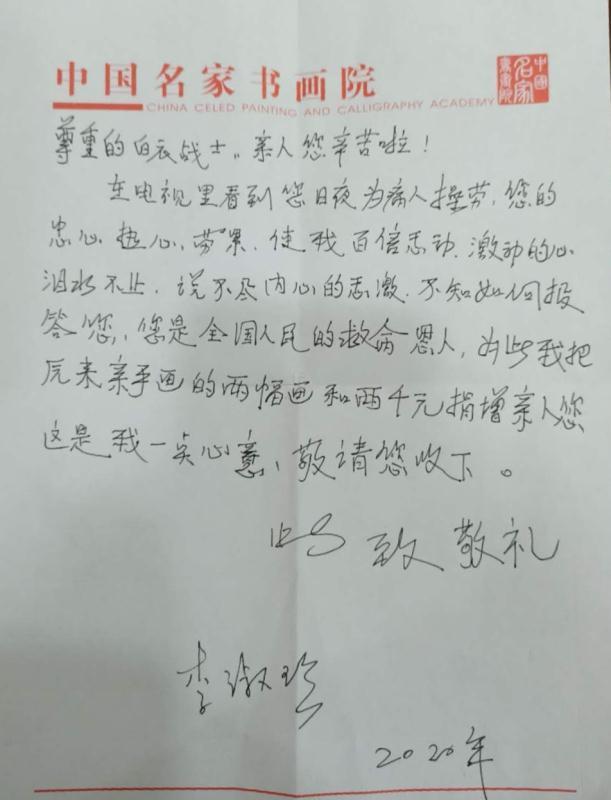 中国名家书画院
中國名家書畫院
CHINA CELED PAINTING AND CALLIGRAPHY ACADEMY
尊重的白衣战士。亲人您辛苦啦！
在电视里看到您日夜为病人操劳，您的
忠心、热心、劳累，使我百倍感动，激动的心
泪水不止，说不尽内心的感激，不知如何报
答您，您是全国人民的救命恩人，为此我把
原来亲手画的两幅画和两千元捐增亲人您
这是我一点心意，敬请您收下。
此致敬礼
李淑珍
2020年